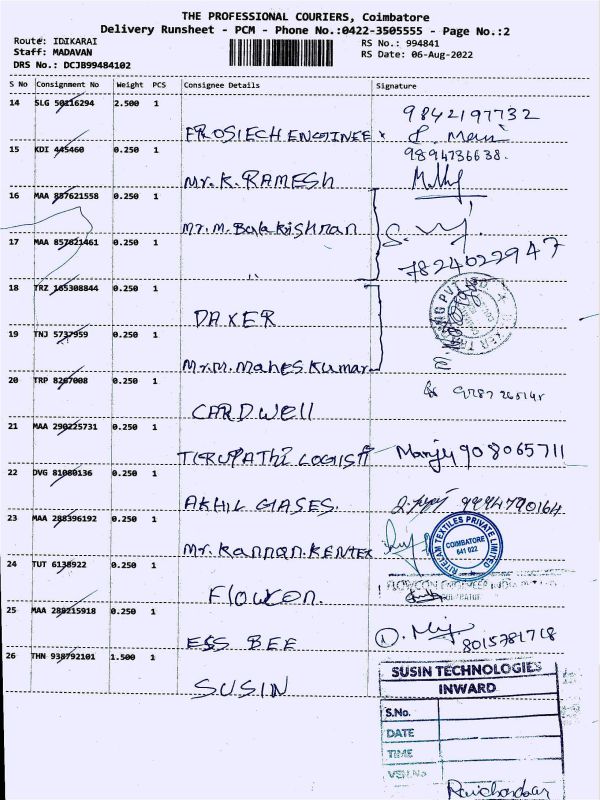 THE PROFESSIONAL COURIERS, Coimbatore
Delivery Runsheet - PCM - Phone No.:0422-3505555 - Page No.:2
Route: IDIKARAI
RS No.: 994841
Staff: MADAVAN
RS Date: 06-Aug-2022
DRS No.: DCJB99484102
S No Consignment No Weight PCS Consignee Details Signature
14 SLG 50116294 2.500 1
9842197732
15 KDI 445460 0.250 1
9894736638.
Mr. K. RAMESH
16 MAA 857621558 0.250 1
Mr. M. Balakrishnan
17 MAA 857621461 0.250 1
7824022947
"
18 TRZ 165308844 0.250 1
DAXER
19 TNJ 5737959 0.250 1
Mr. M. Mahes Kumar
20 TRP 8267008 0.250 1
CARDWell
21 MAA 290225731 0.250 1
TIRUPAThi LOGIST
908065711
22 DVG 81080136 0.250 1
AKHIL GASES.
23 MAA 288396192 0.250 1
Mr. Kannan. KENTEX
RITEKAM TEXTILES PRIVATE LIMITED
COIMBATORE
641 022
24 TUT 6138922 0.250 1
Flowcon.
25 MAA 289215918 0.250 1
ESS BEE
8015781718
26 THN 938792101 1.500 1
SUSIN
SUSIN TECHNOLOGIES
INWARD
S.No.
DATE
TIME